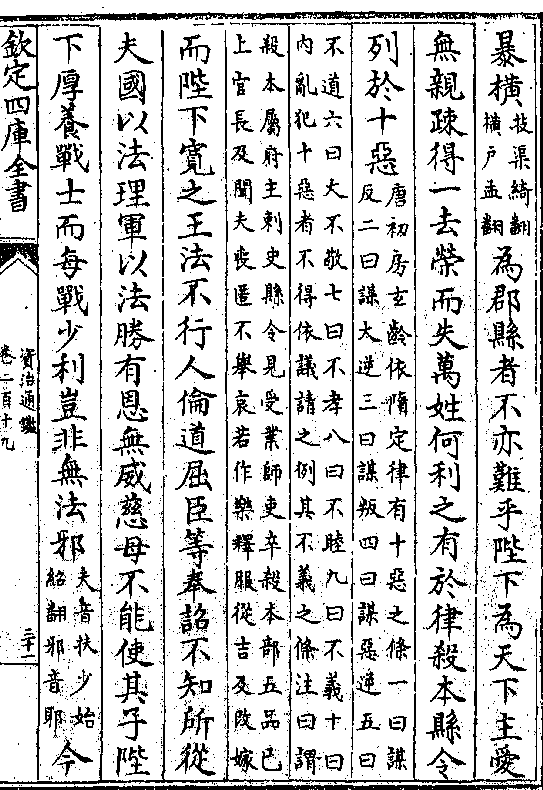 暴横技渠綺翻横戸孟翻為郡縣者不亦難乎陛下為天下主愛
無親疎得一去榮而失萬姓何利之有於律殺本縣令
列於十惡唐初房玄齡依隋定律有十惡之條一曰謀反二曰謀大逆三曰謀叛四曰謀惡逆五曰
不道六曰大不敬七曰不孝八曰不睦九曰不義十曰
內亂犯十惡者不得依議請之例其不義之條注曰謂
殺本屬府主刺史縣令見受業師吏卒殺本部五品已
上官長及聞夫喪匿不舉哀若作樂釋服從吉及改嫁
而陛下寛之王法不行人倫道屈臣等奉詔不知所從
夫國以法理軍以法勝有恩無威慈母不能使其子陛
下厚養戰士而每戰少利豈非無法邪夫音扶少始紹翻邪音耶今
欽定四庫全書
資治通鑑
卷二百十九
三十一